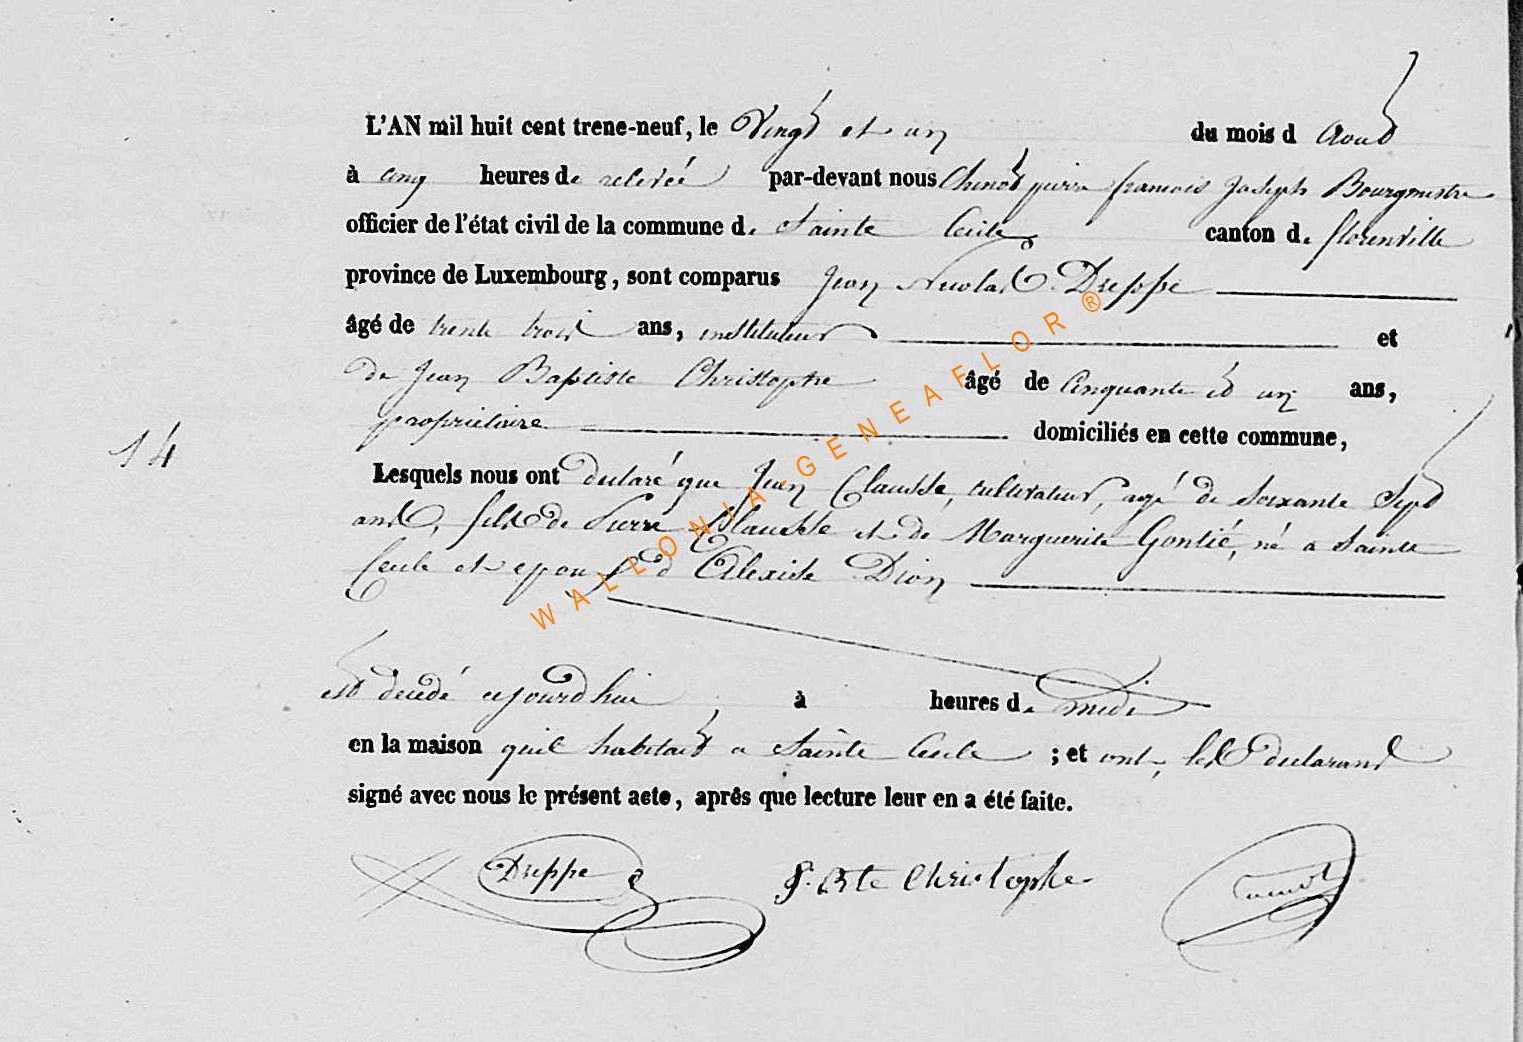 L'AN mil huit cent trene-neuf, le Vingt et un du mois d Aout
à cinq heures de relevée par-devant nous Chenot pierre francois Joseph Bourgmestre
officier de l'état civil de la commune de Sainte Cecile canton de florenville
province de Luxembourg, sont comparus Jean Nicolas Dreppe
âgé de trente trois ans, instituteur et
de Jean Baptiste Christophe âgé de Cinquante et un ans,
propriétaire domiciliés en cette commune,
14
Lesquels nous ont declaré que Jean Clausse, cultivateur, agé de soixante Sept
ans, fils de Pierre Clausse et de Marguerite Gontié, né a Sainte
Cecile et epoux d'Alexise Dion
est decedé aujourdhui à heures de midi
en la maison quil habitait a Sainte Cecile ; et ont, les declarans
signé avec nous le présent acte, après que lecture leur en a été faite.
Dreppe J. Bte Christophe
WALLONIA-GENEAFLOR®